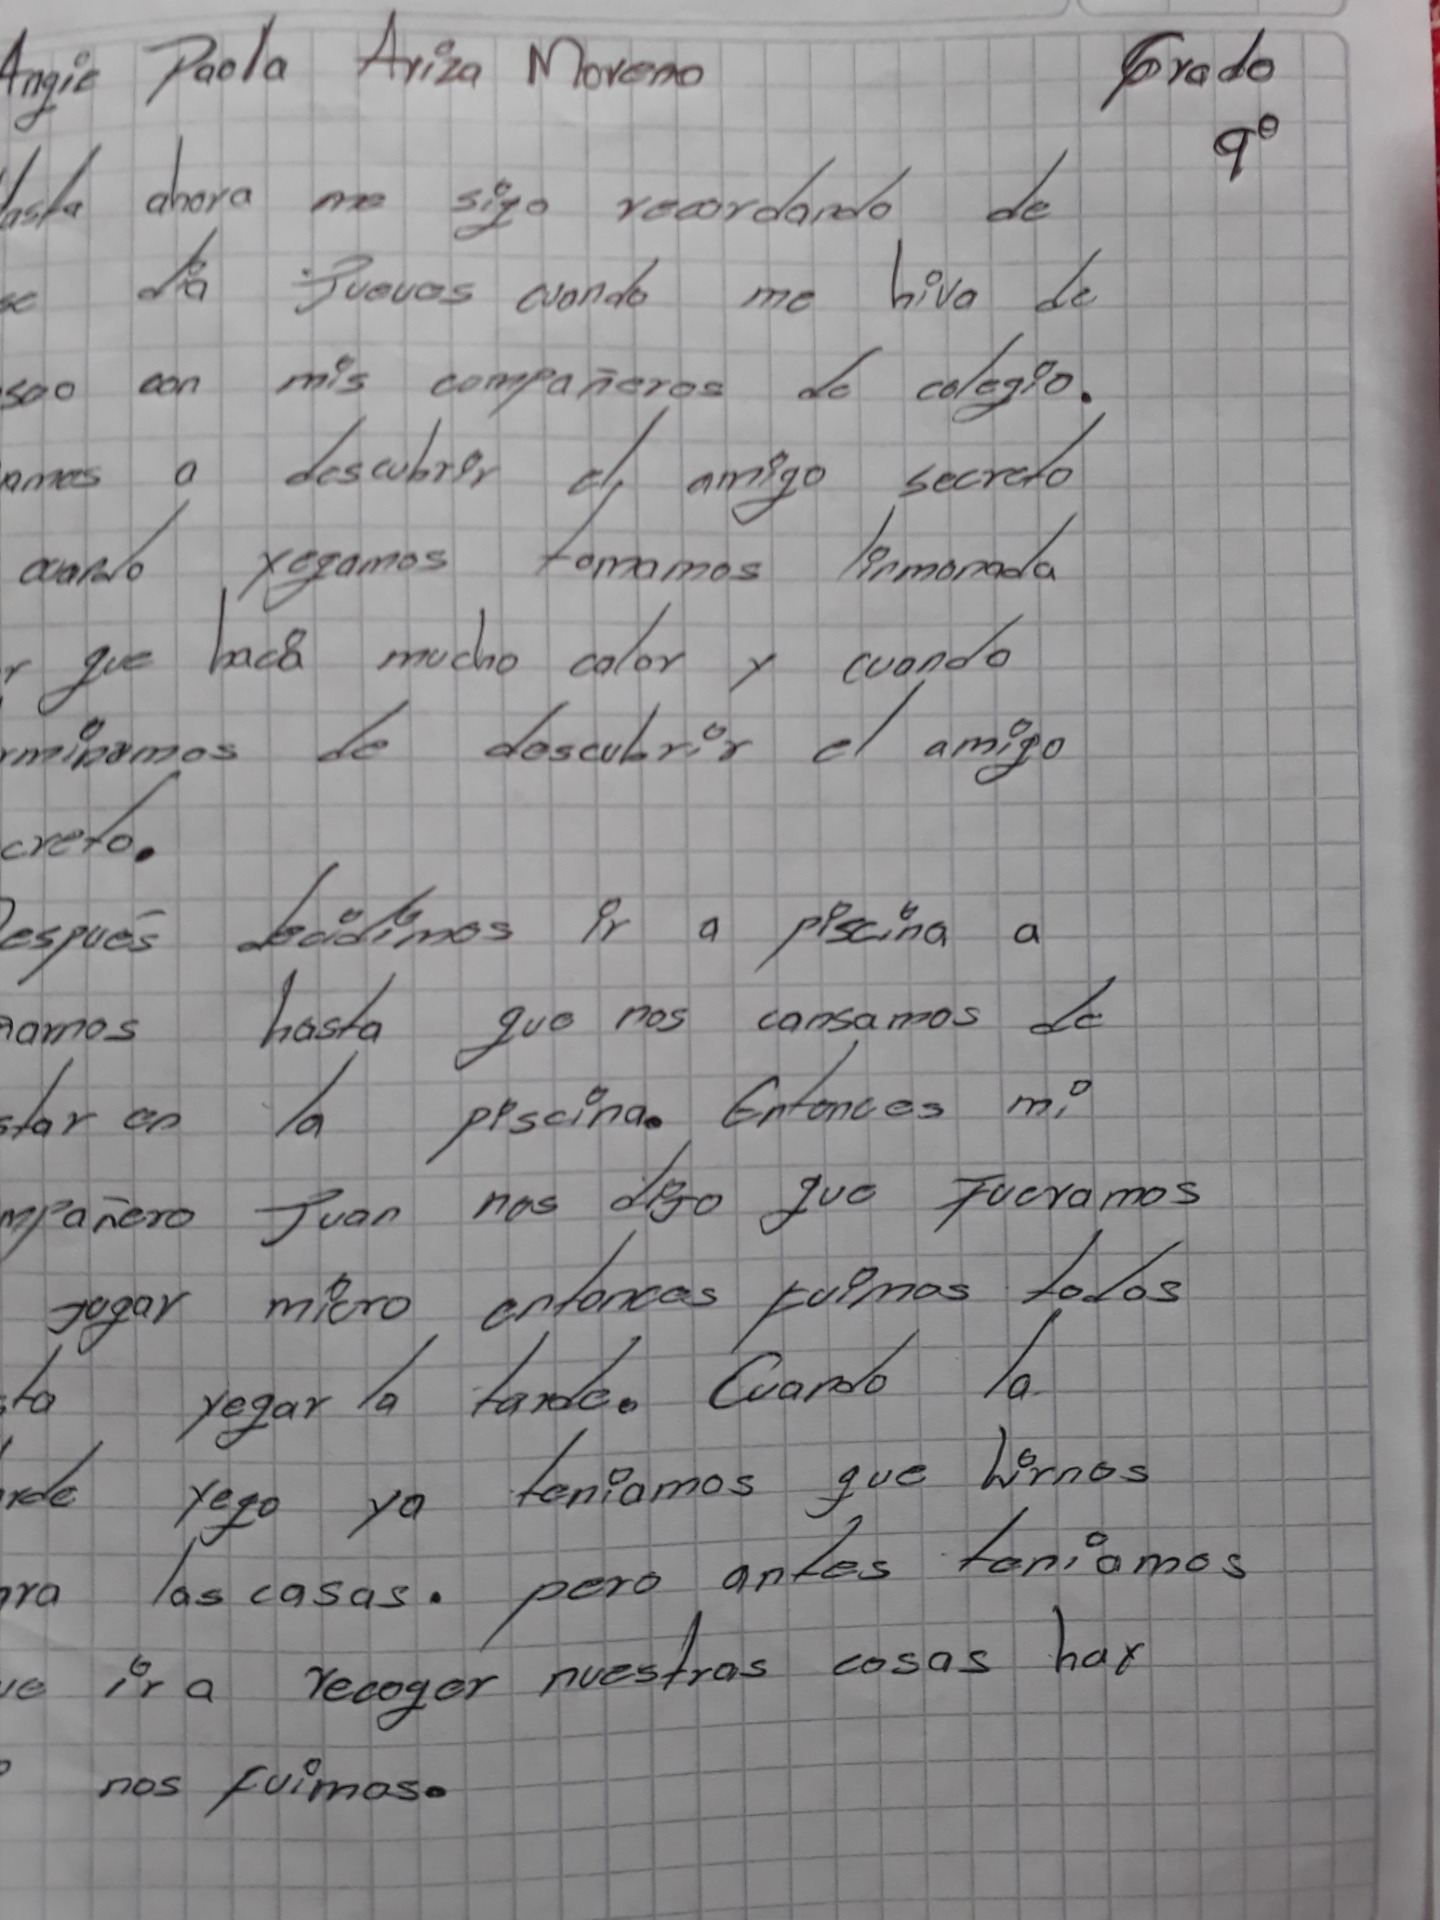 Angie Paola Ariza Moreno Grado
9°
Hasta ahora me sigo recordando de
se día Jueves cuando me hiva de
seo con mis compañeros de colegio.
amos a descubrir el amigo secreto
cuando yegamos tomamos linmonada
r que hacia mucho calor y cuando
rminamos de descubrir el amigo
creto.
Después decidimos ir a piscina a
ñarnos hasta que nos cansamos de
star en la piscina. Entonces mi
mpañero Juan nos dijo que Fueramos
Jugar micro entonces fuimos todos
sta yegar la tarde. Cuando la
arde yego ya teniamos que hirnos
ara las casas. pero antes teniamos
ue ir a recoger nuestras cosas hay
nos fuimos.